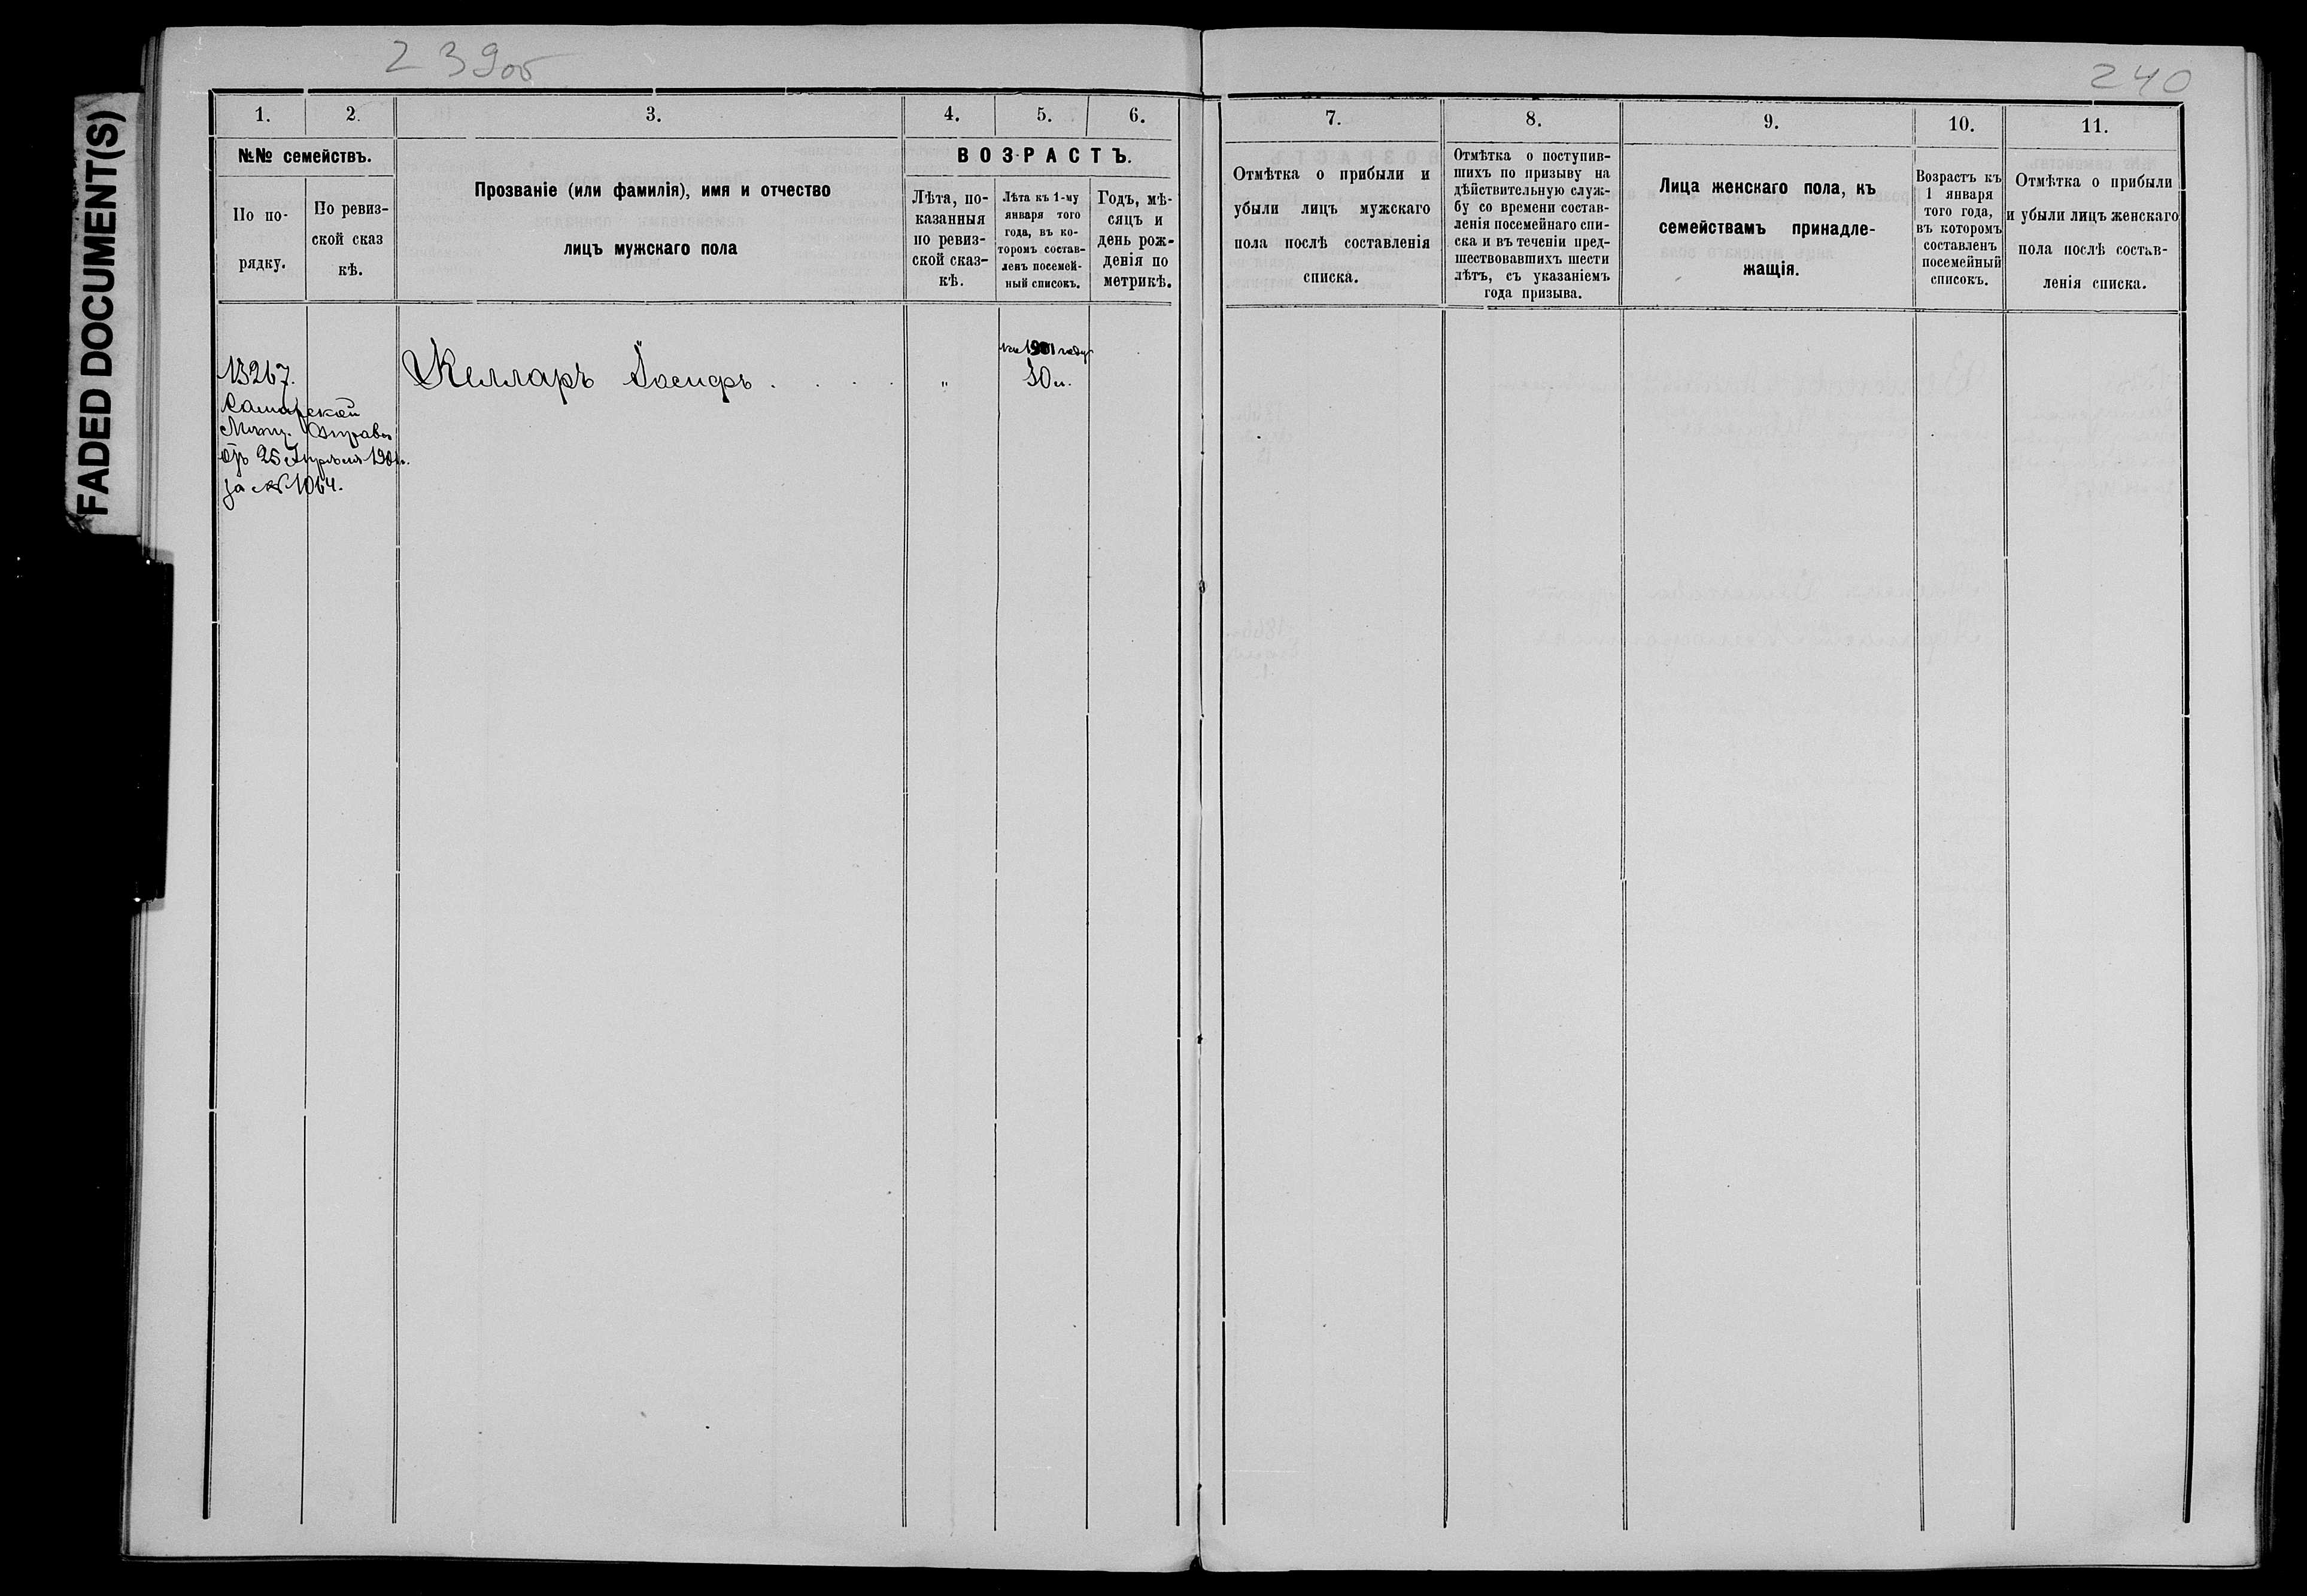 FADED DOCUMENT(S)
239об
240
1.
2.
3.
4.
5.
6.
№№ семействъ.
По по-
рядку.
По ревиз-
ской сказ
кѣ.
Прозваніе (или фамилія), имя и отчество
лицъ мужскаго пола
ВОЗРАСТЪ.
Лѣта, по-
казанныя
по ревиз-
ской сказ-
кѣ.
Лѣта къ 1-му
января того
года, въ ко-
торомъ состав-
ленъ посемей-
ный списокъ.
Годъ, мѣ-
сяцъ и
день рож-
денія по
метрикѣ.
13267.
Самарской
Мѣщ. Управы
отъ 25 Апрѣля 1901г.
за № 1064.
Келларъ Іосифъ . . . .
"
на 1901 годъ
7.
8.
9.
10.
11.
Отмѣтка о прибыли и
убыли лицъ мужскаго
пола послѣ составленія
списка.
Отмѣтка о поступив-
шихъ по призыву на
дѣйствительную служ-
бу со времени состав-
ленія посемейнаго спи-
ска и въ теченіи пред-
шествовавшихъ шести
лѣтъ, съ указаніемъ
года призыва.
Лица женскаго пола, къ
семействамъ принадле-
жащія.
Возрастъ къ
1 января
того года,
въ которомъ
составленъ
посемейный
списокъ.
Отмѣтка о прибыли
и убыли лицъ женскаго
пола послѣ состав-
ленія списка.